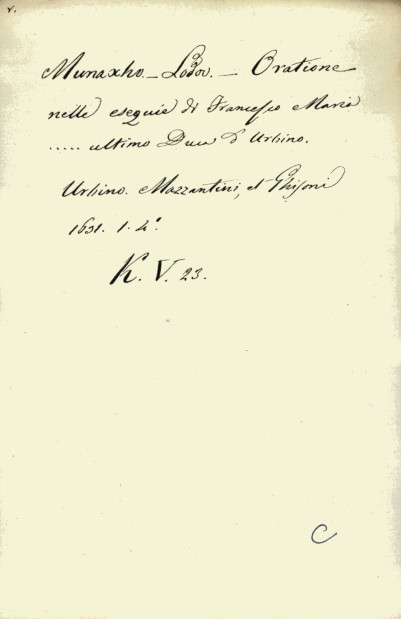 v.
Munaxho _ Lodov. _ Oratione
nelle esequie di Francesco Maria
..... ultimo Duca d'Urbino.
Urbino. Mazzantini, et Ghisoni
1631. 1. 4°.
K. V. 23.
C